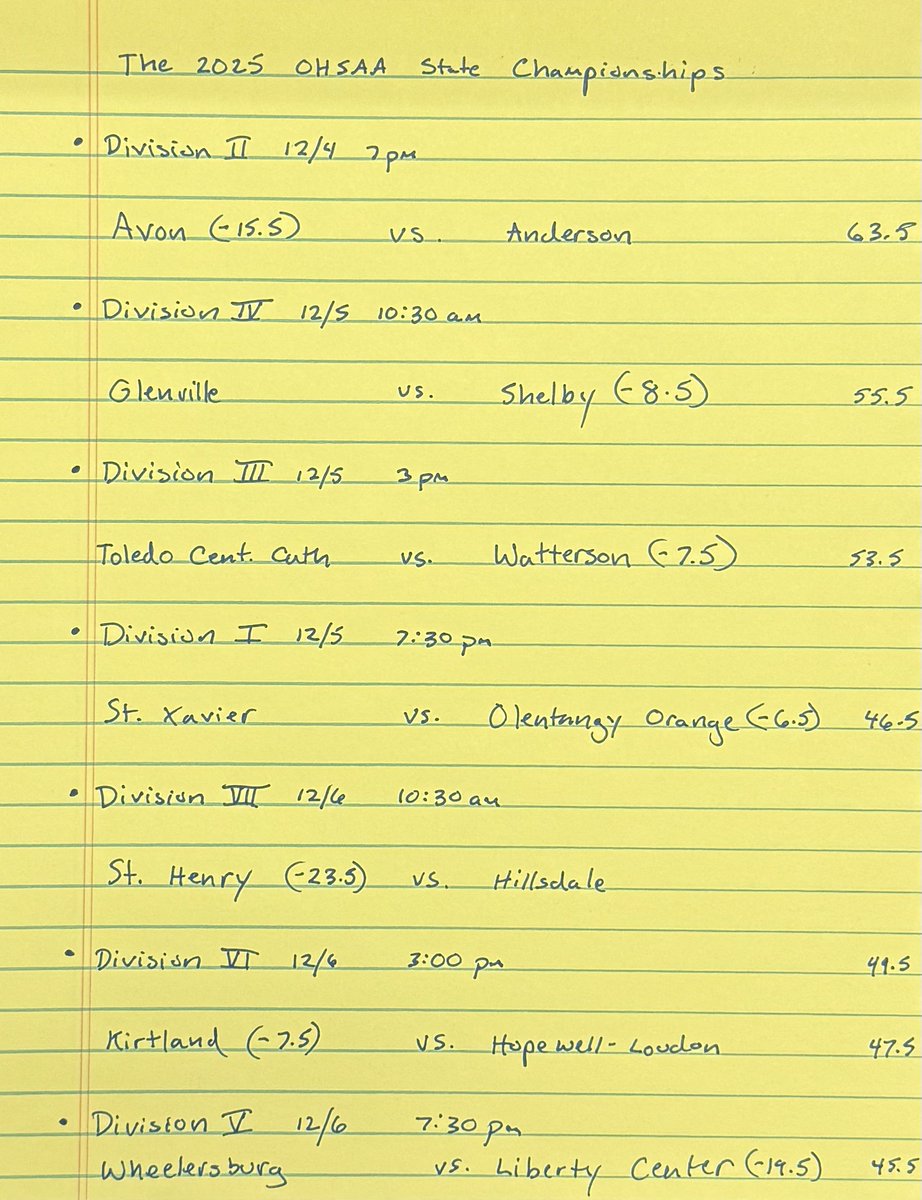 The 2025 OHSAA State Championships
• Division II 12/4 7pm
Avon (-15.5) vs. Anderson 63.5
• Division IV 12/5 10:30 am
Glenville vs. Shelby (-8.5) 55.5
• Division III 12/5 3pm
Toledo Cent. Cath vs. Watterson (-7.5) 53.5
• Division I 12/5 7:30 pm
St. Xavier vs. Olentangy Orange (-6.5) 46.5
• Division VII 12/6 10:30 am
St. Henry (-23.5) vs. Hillsdale
• Division VI 12/6 3:00 pm 49.5
Kirtland (-7.5) vs. Hopewell-Loudon 47.5
• Division V 12/6 7:30 pm
Wheelersburg vs. Liberty Center (-19.5) 45.5